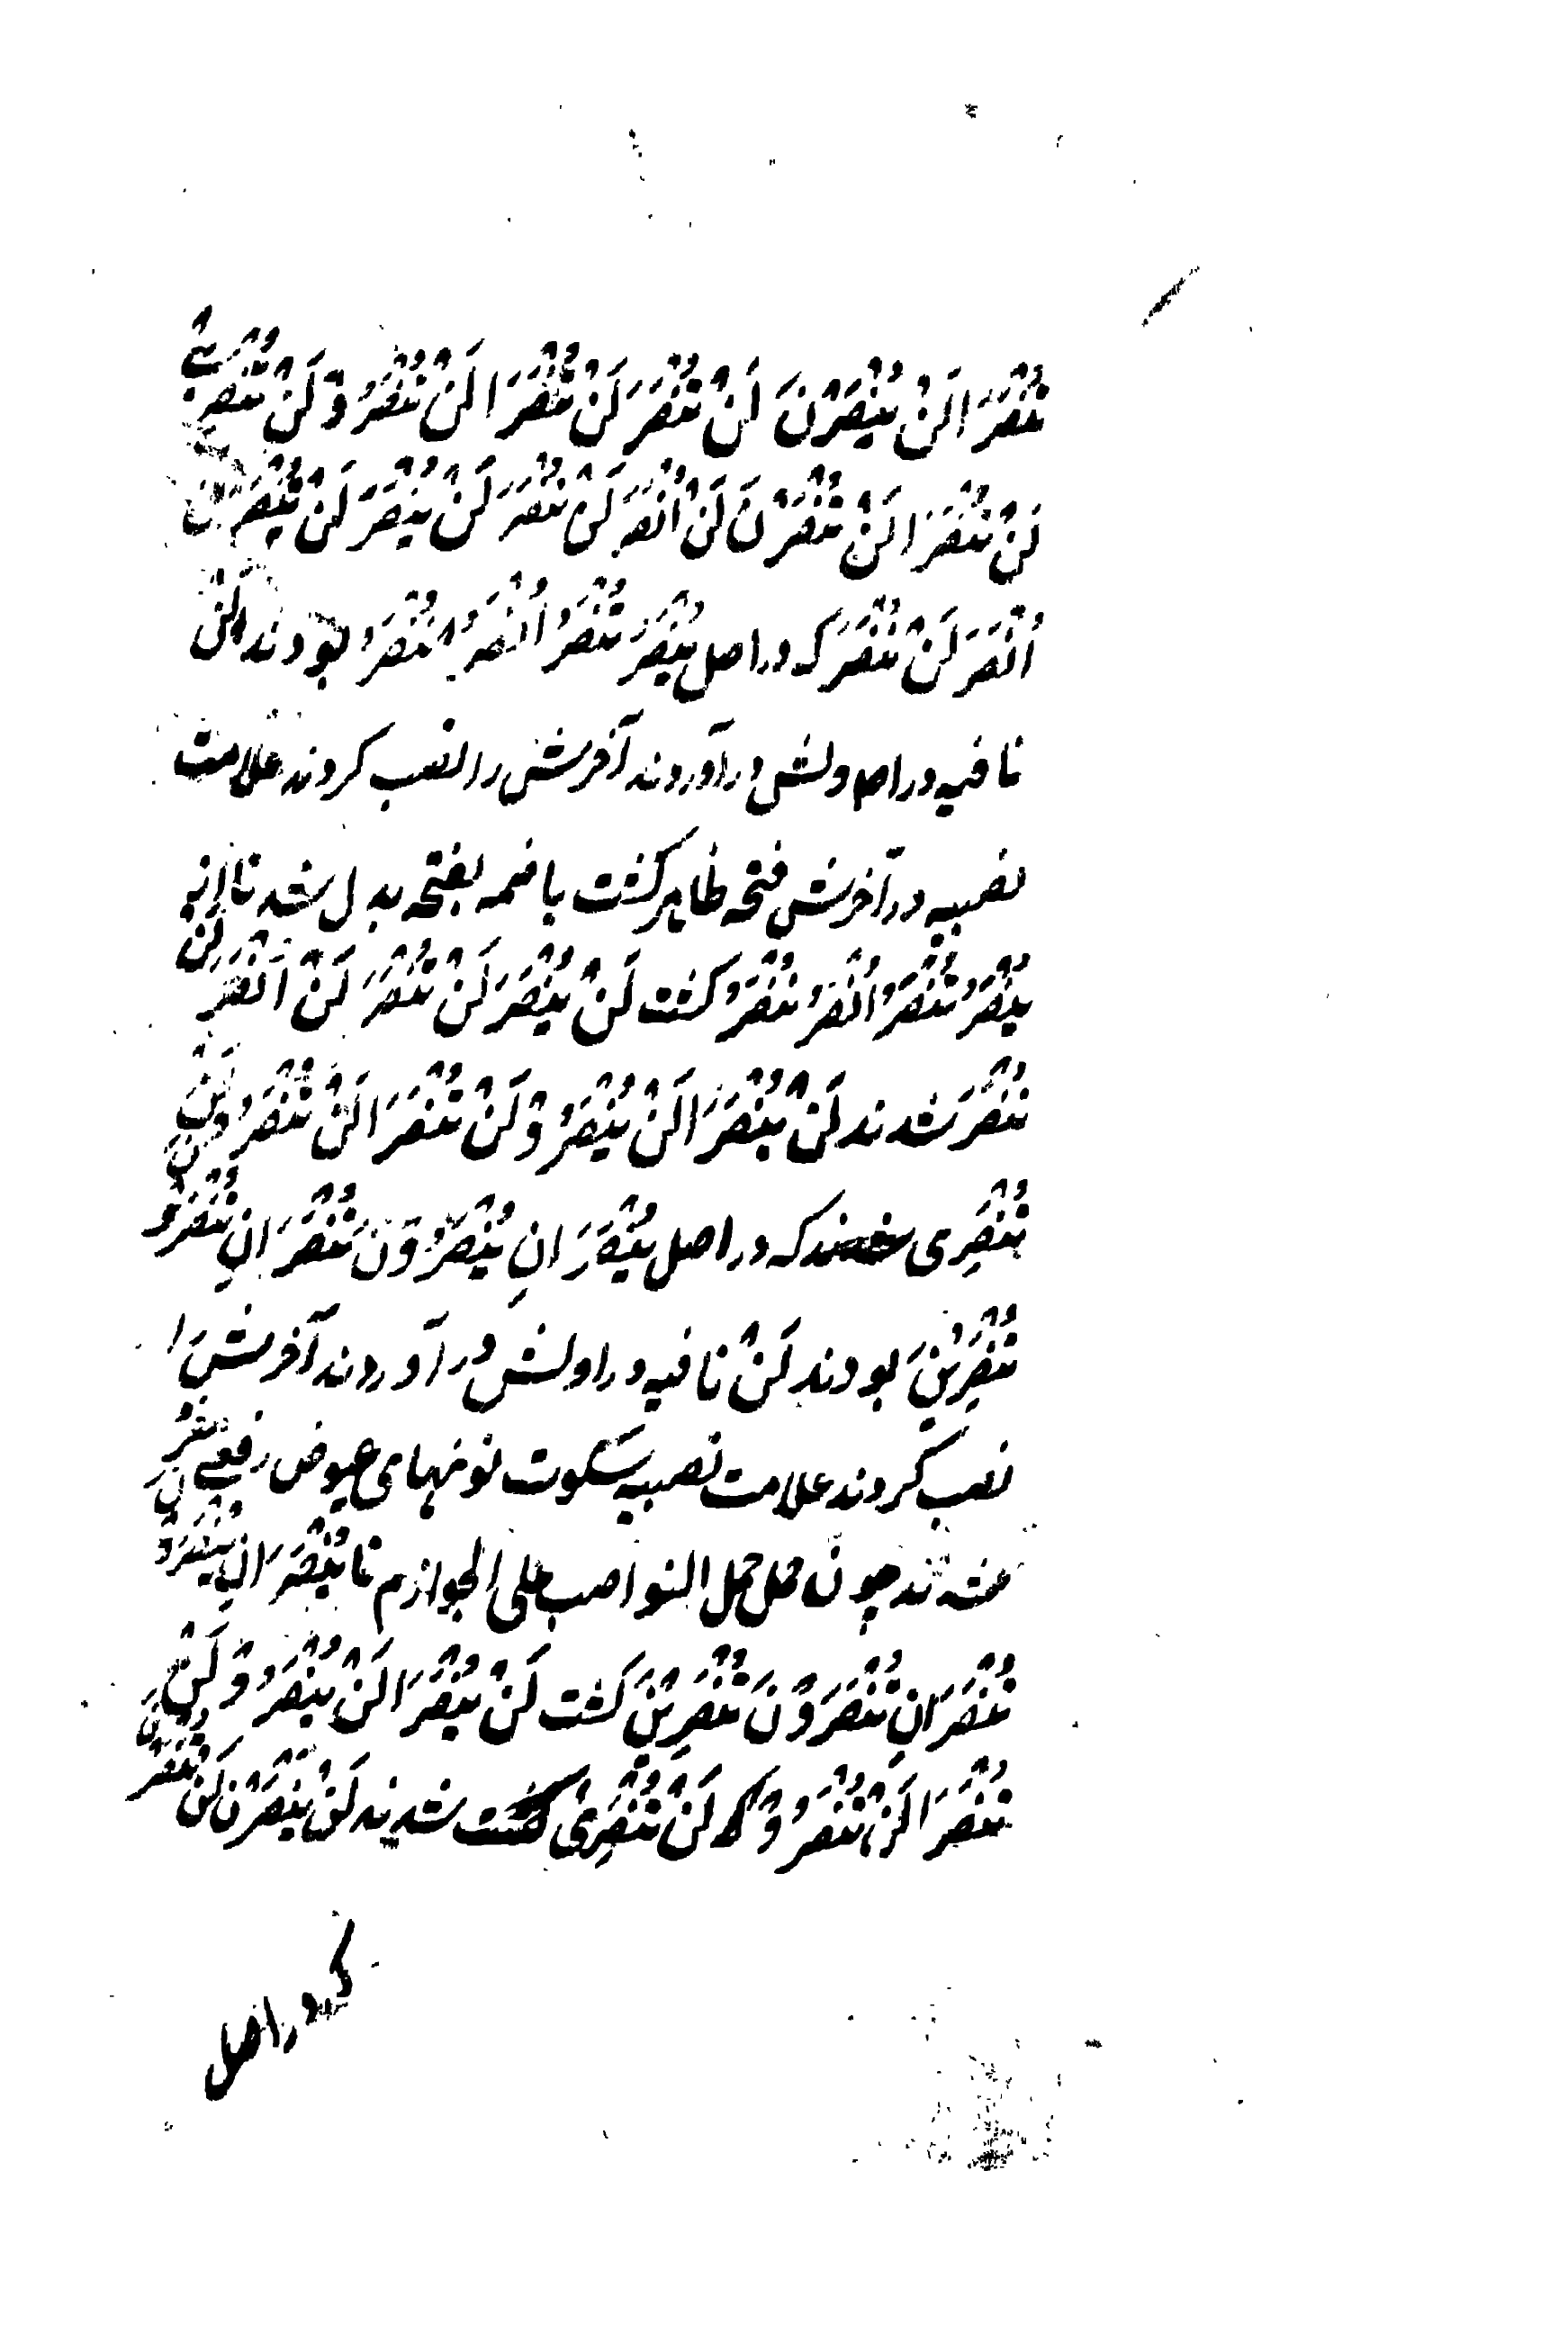 تُنْصَرَا لَنْ يُنْصَرْنَ لَنْ تُنْصَرَ لَنْ تُنْصَرَا لَنْ تُنْصَرُوْ لَنْ تُنْصَرِیْ
لَنْ تُنْصَرَا لَنْ تُنْصَرْنَ لَنْ اُنْصَرَ لَنْ نُنْصَرَ لَنْ يُنْصَرَ لَنْ تُنْصَرَ لَنْ
اُنْصَرَ لَنْ نُنْصَرَ کہ در اصل يُنْصَرُ تُنْصَرُ اُنْصَرُ نُنْصَرُ بودند لَنْ
نافیه در اولش در آوردند آخرش را نصب کردند علامت
نصبیه در آخرش فتحه ظاهر کشت یا ضمه بفتحه بدل شد تا از
يُنْصَرُ تُنْصَرُ اُنْصَرُ نُنْصَرُ کشت لَنْ يُنْصَرَ لَنْ تُنْصَرَ لَنْ اُنْصَرَ لَنْ
نُنْصَرَ شدند لَنْ يُنْصَرَا لَنْ يُنْصَرُوْ لَنْ تُنْصَرَا لَنْ تُنْصَرُوْ لَنْ
تُنْصَرِی که در اصل يُنْصَرَانِ يُنْصَرُوْنَ تُنْصَرَانِ تُنْصَرُوْنَ
تُنْصَرِيْنَ بودند لَنْ نافیه در اولش در آوردند آخرش را
نصب کردند علامت نصبیه سکوت نونهای عیوض رفعی
شدند چون محل حمل النواصب علی الجوازم تا يُنْصَرَانِ يُنْصَرُوْنَ
تُنْصَرَانِ تُنْصَرَوْنَ تُنْصَرِيْنَ کشت لَنْ يُنْصَرَا لَنْ يُنْصَرُوْ لَنْ
تُنْصَرَا لَنْ تُنْصَرُوْ لَنْ تُنْصَرِیْ شدند لَنْ يُنْصَرْنَ لَنْ تُنْصَرْنَ
که در اصل